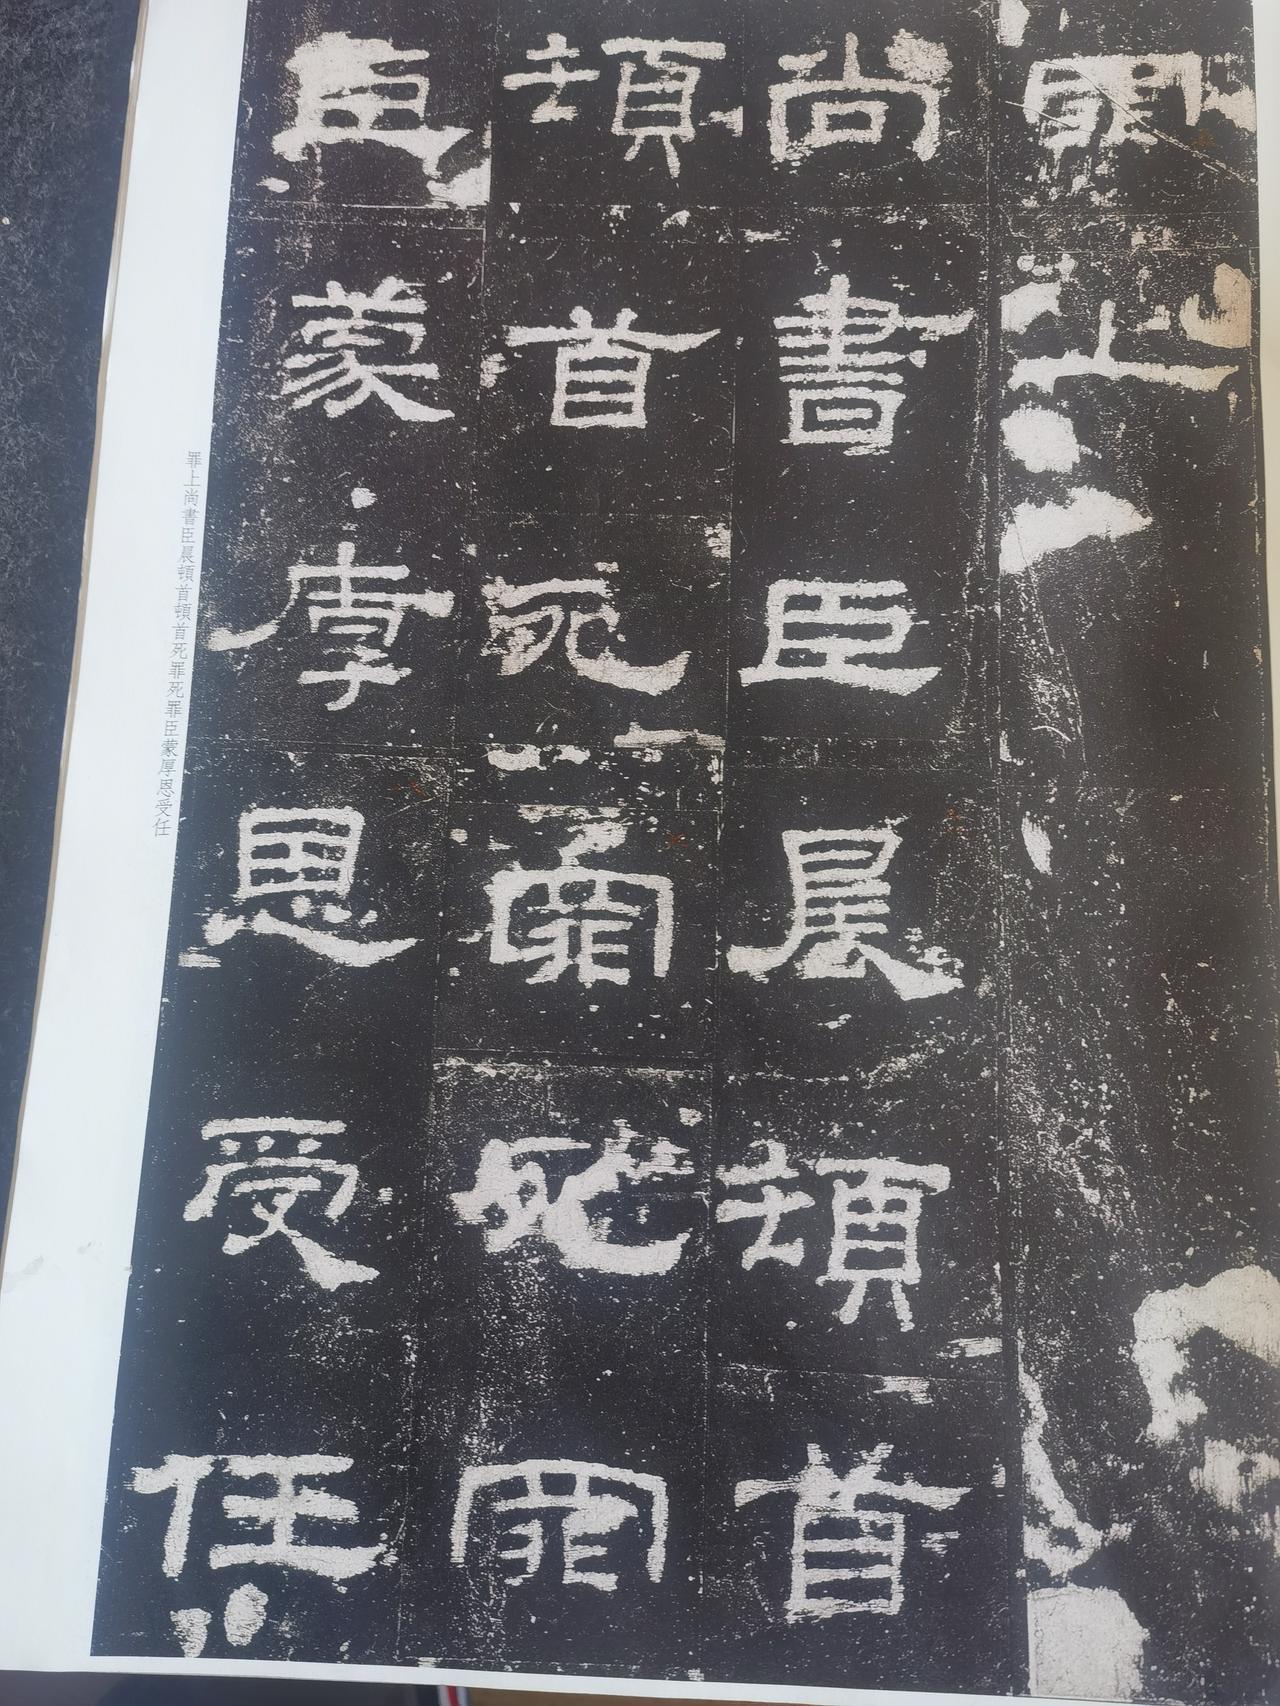 罪上
尚書臣晨頓首
頓首死罪死罪
臣蒙厚恩受任
罪上尚書臣晨頓首頓首死罪死罪臣蒙厚恩受任